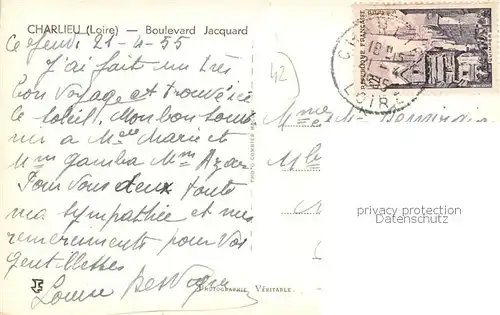 CHARLIEU (Loire) — Boulevard Jacquard
Ce Jeudi 21-4-55
J'ai fait un très
bon voyage et trouvé ici
le soleil. Mon bon souve
nir à Melle Marie et
Mme Gamba Mme Azar
Pour vous deux toute
ma sympathie et mes
remerciements pour vos
gentillesses
Louise
42
Mme et Mr
Mlle
LOIRE
PHOTOGRAPHIE VÉRITABLE
privacy protection
www.Ansichtskartenversand.com
Datenschutz